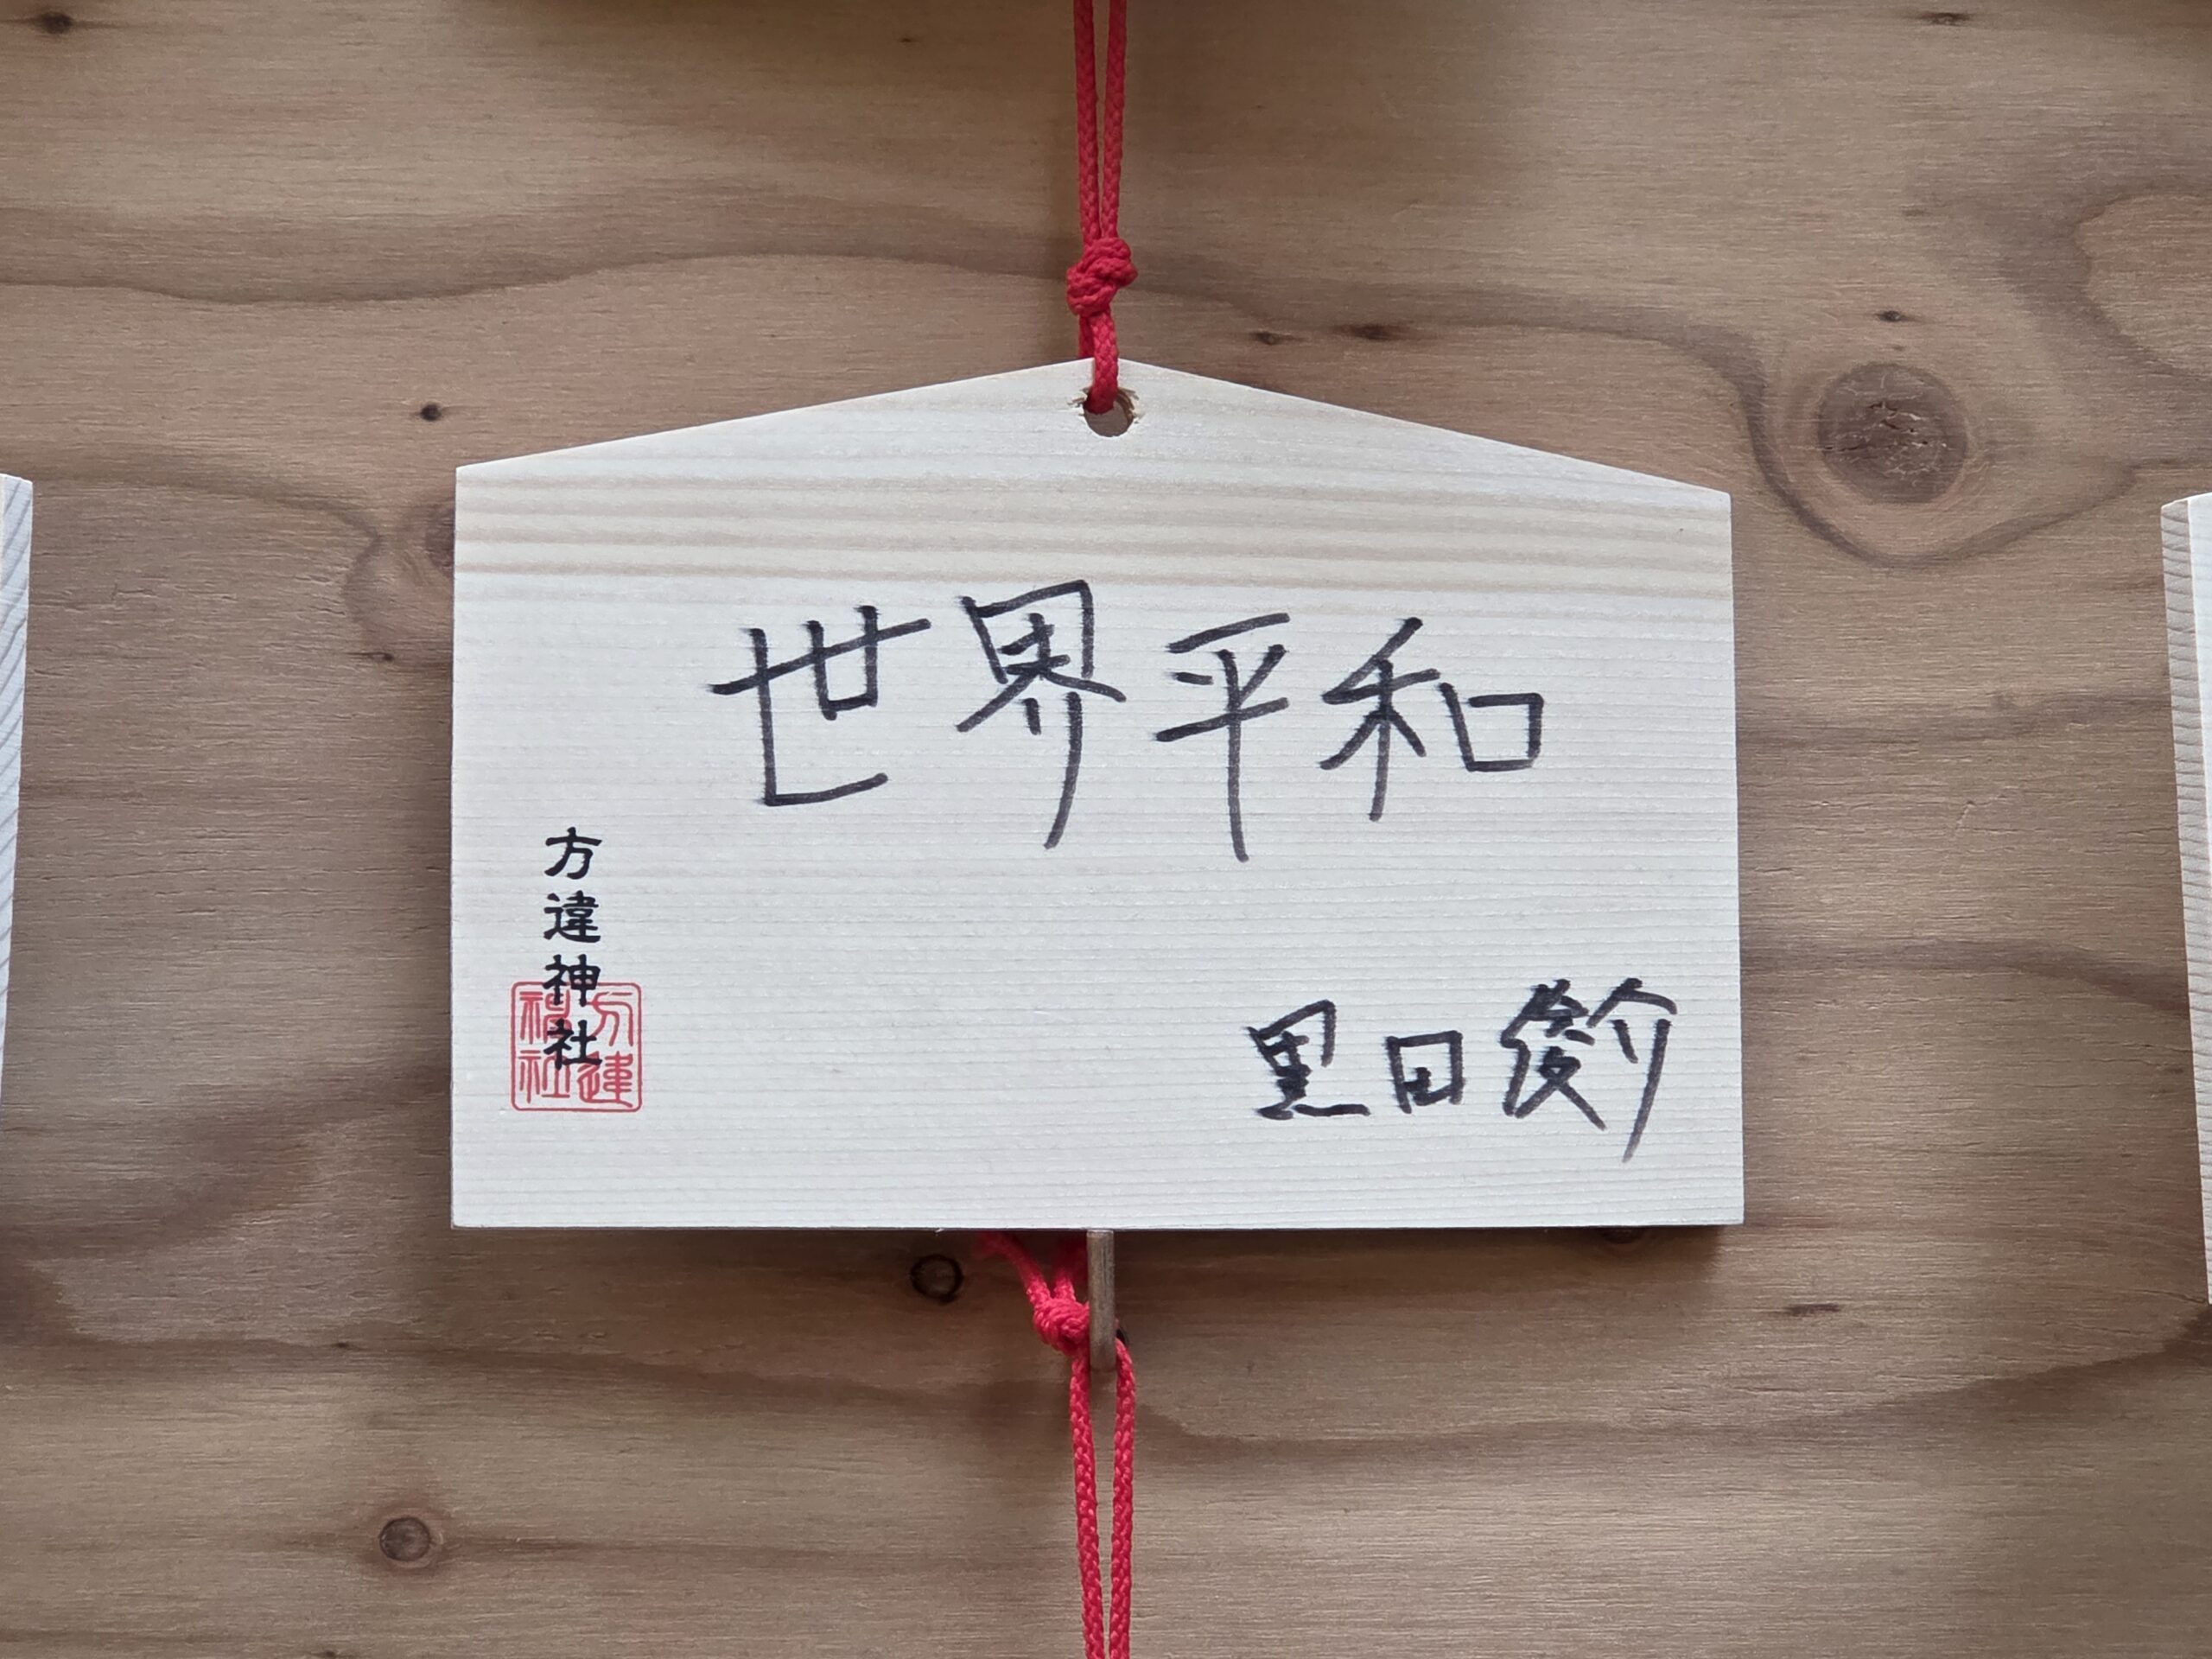 世界平和
黒田俊介
方違神社
方違神社